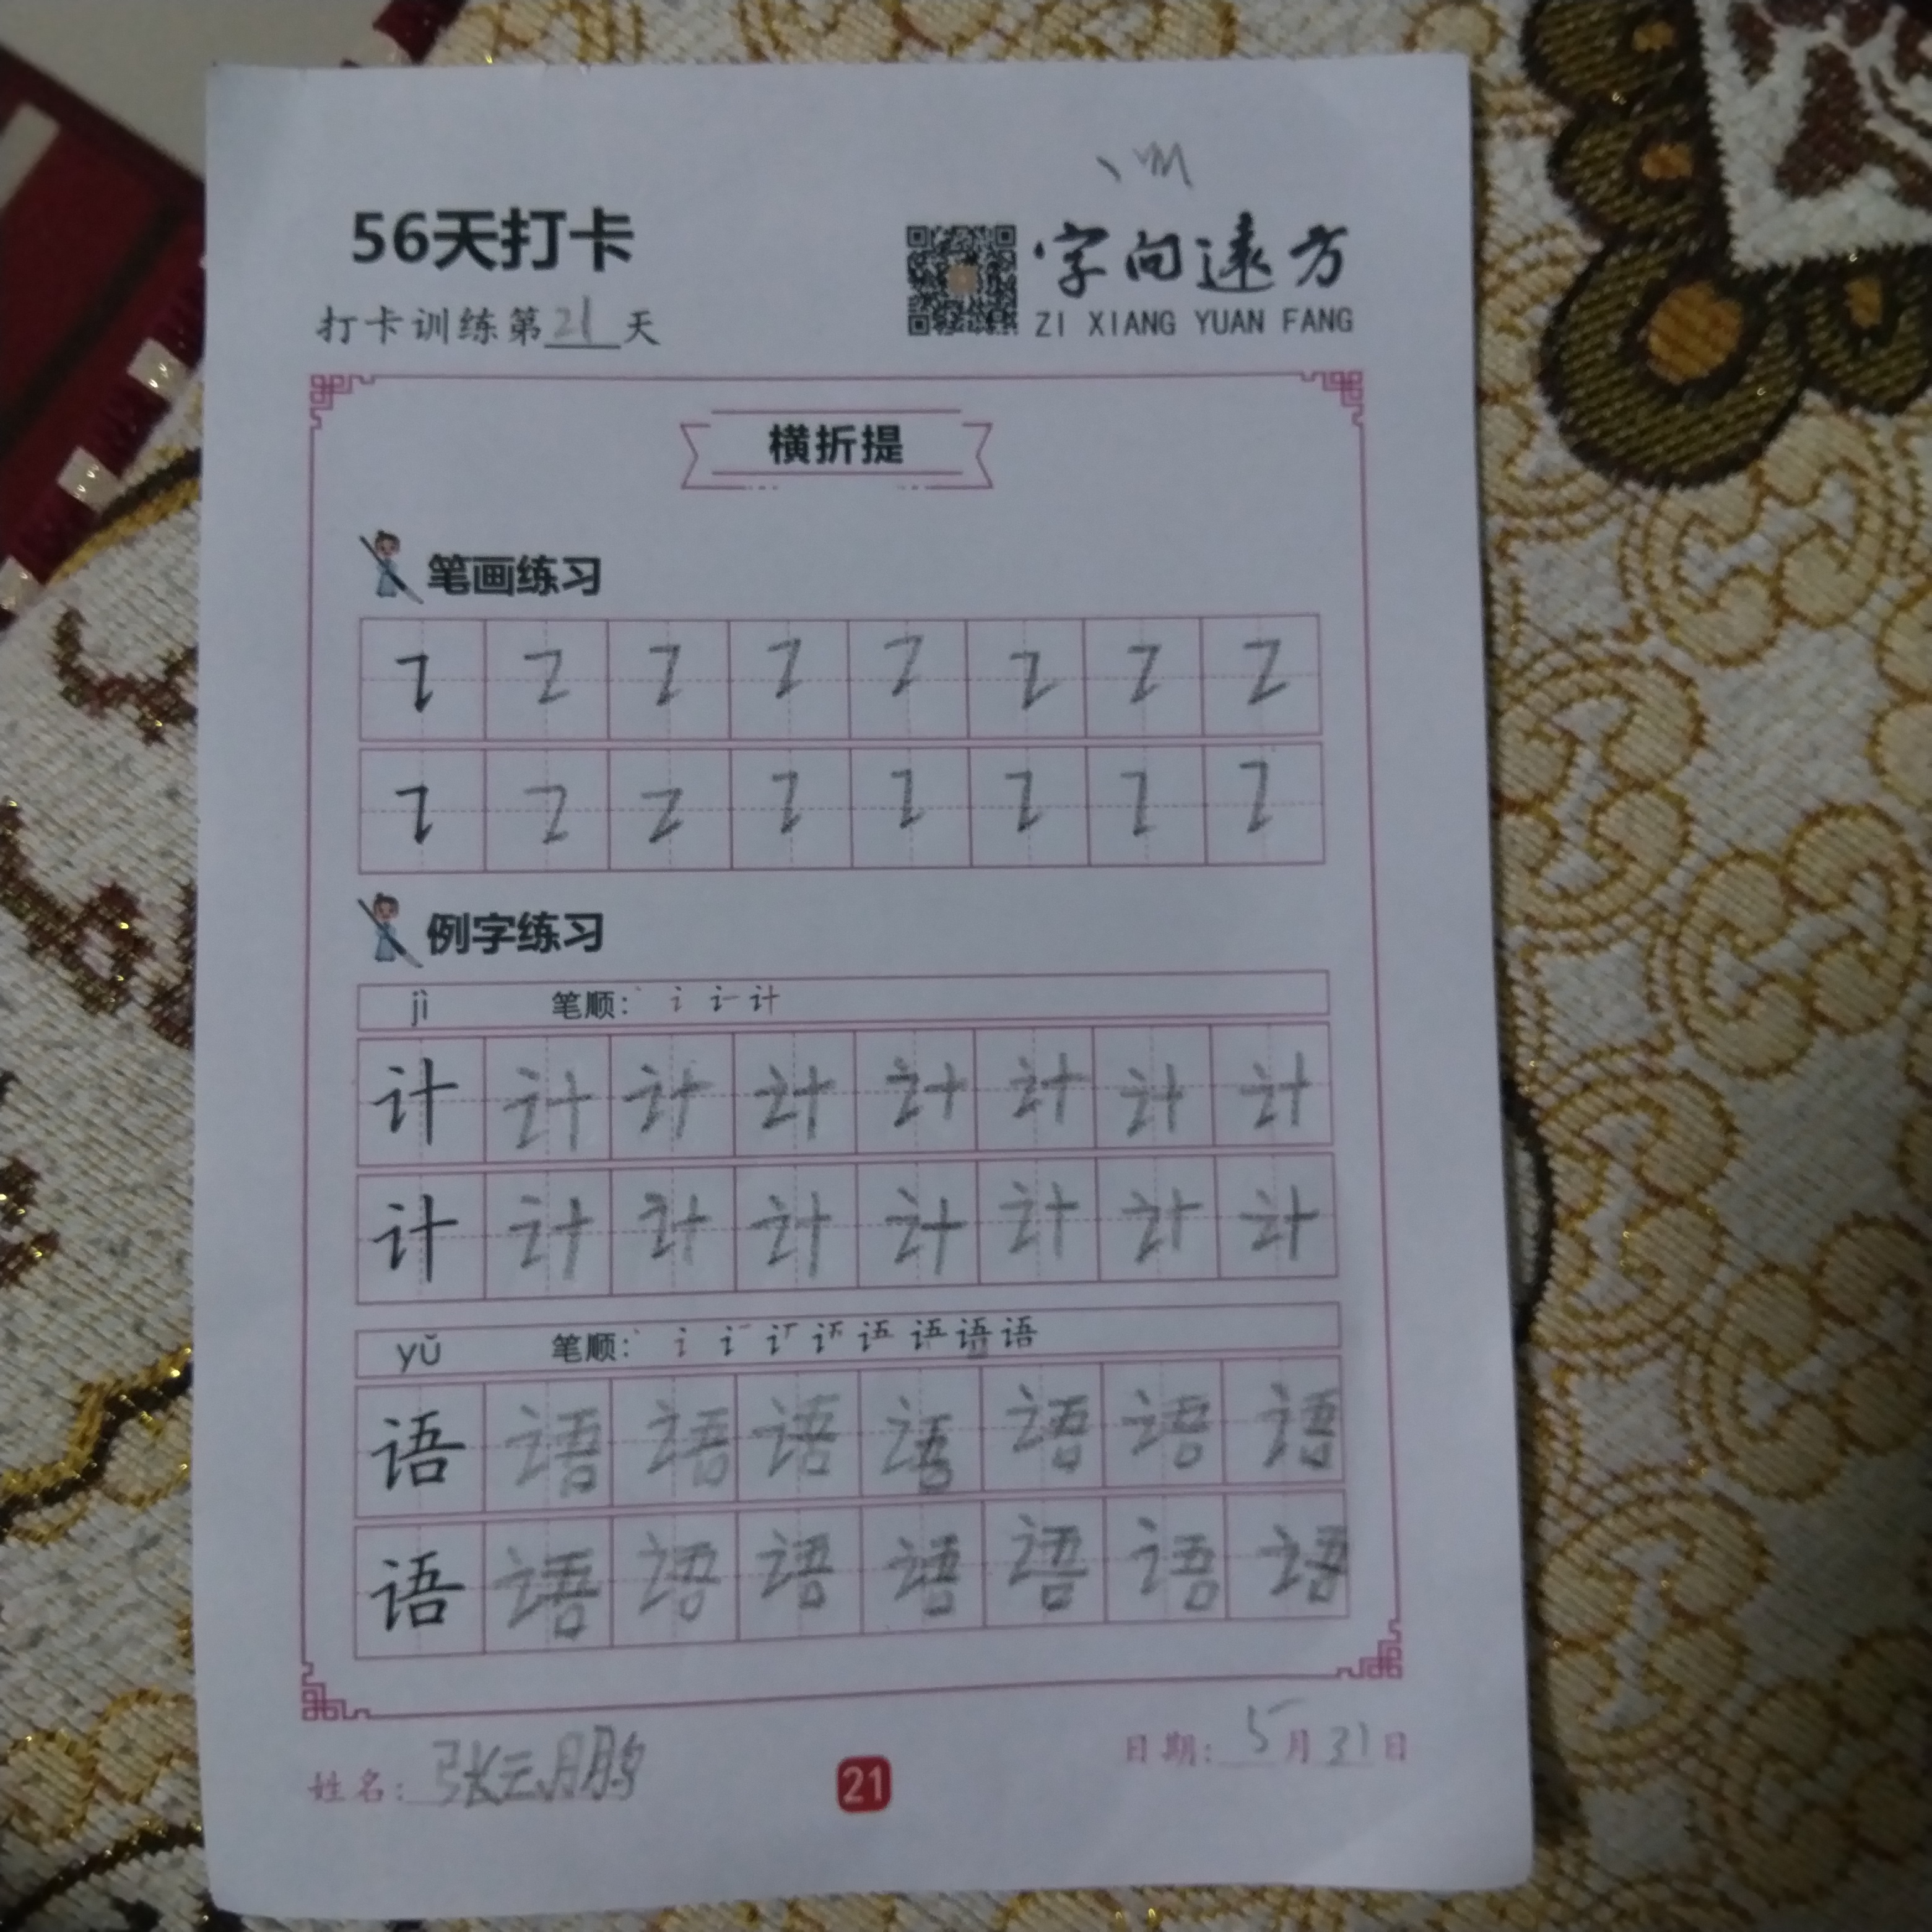 56天打卡
字向远方
ZI XIANG YUAN FANG
打卡训练第21天
横折提
笔画练习
例字练习
jì 笔顺：丶 讠 计
计 计 计 计 计 计 计 计
计 计 计 计 计 计 计 计
yǔ 笔顺：
语 语 语 语 语 语 语 语
语 语 语 语 语 语 语 语
姓名：张云鹏
21
日期：5月31日